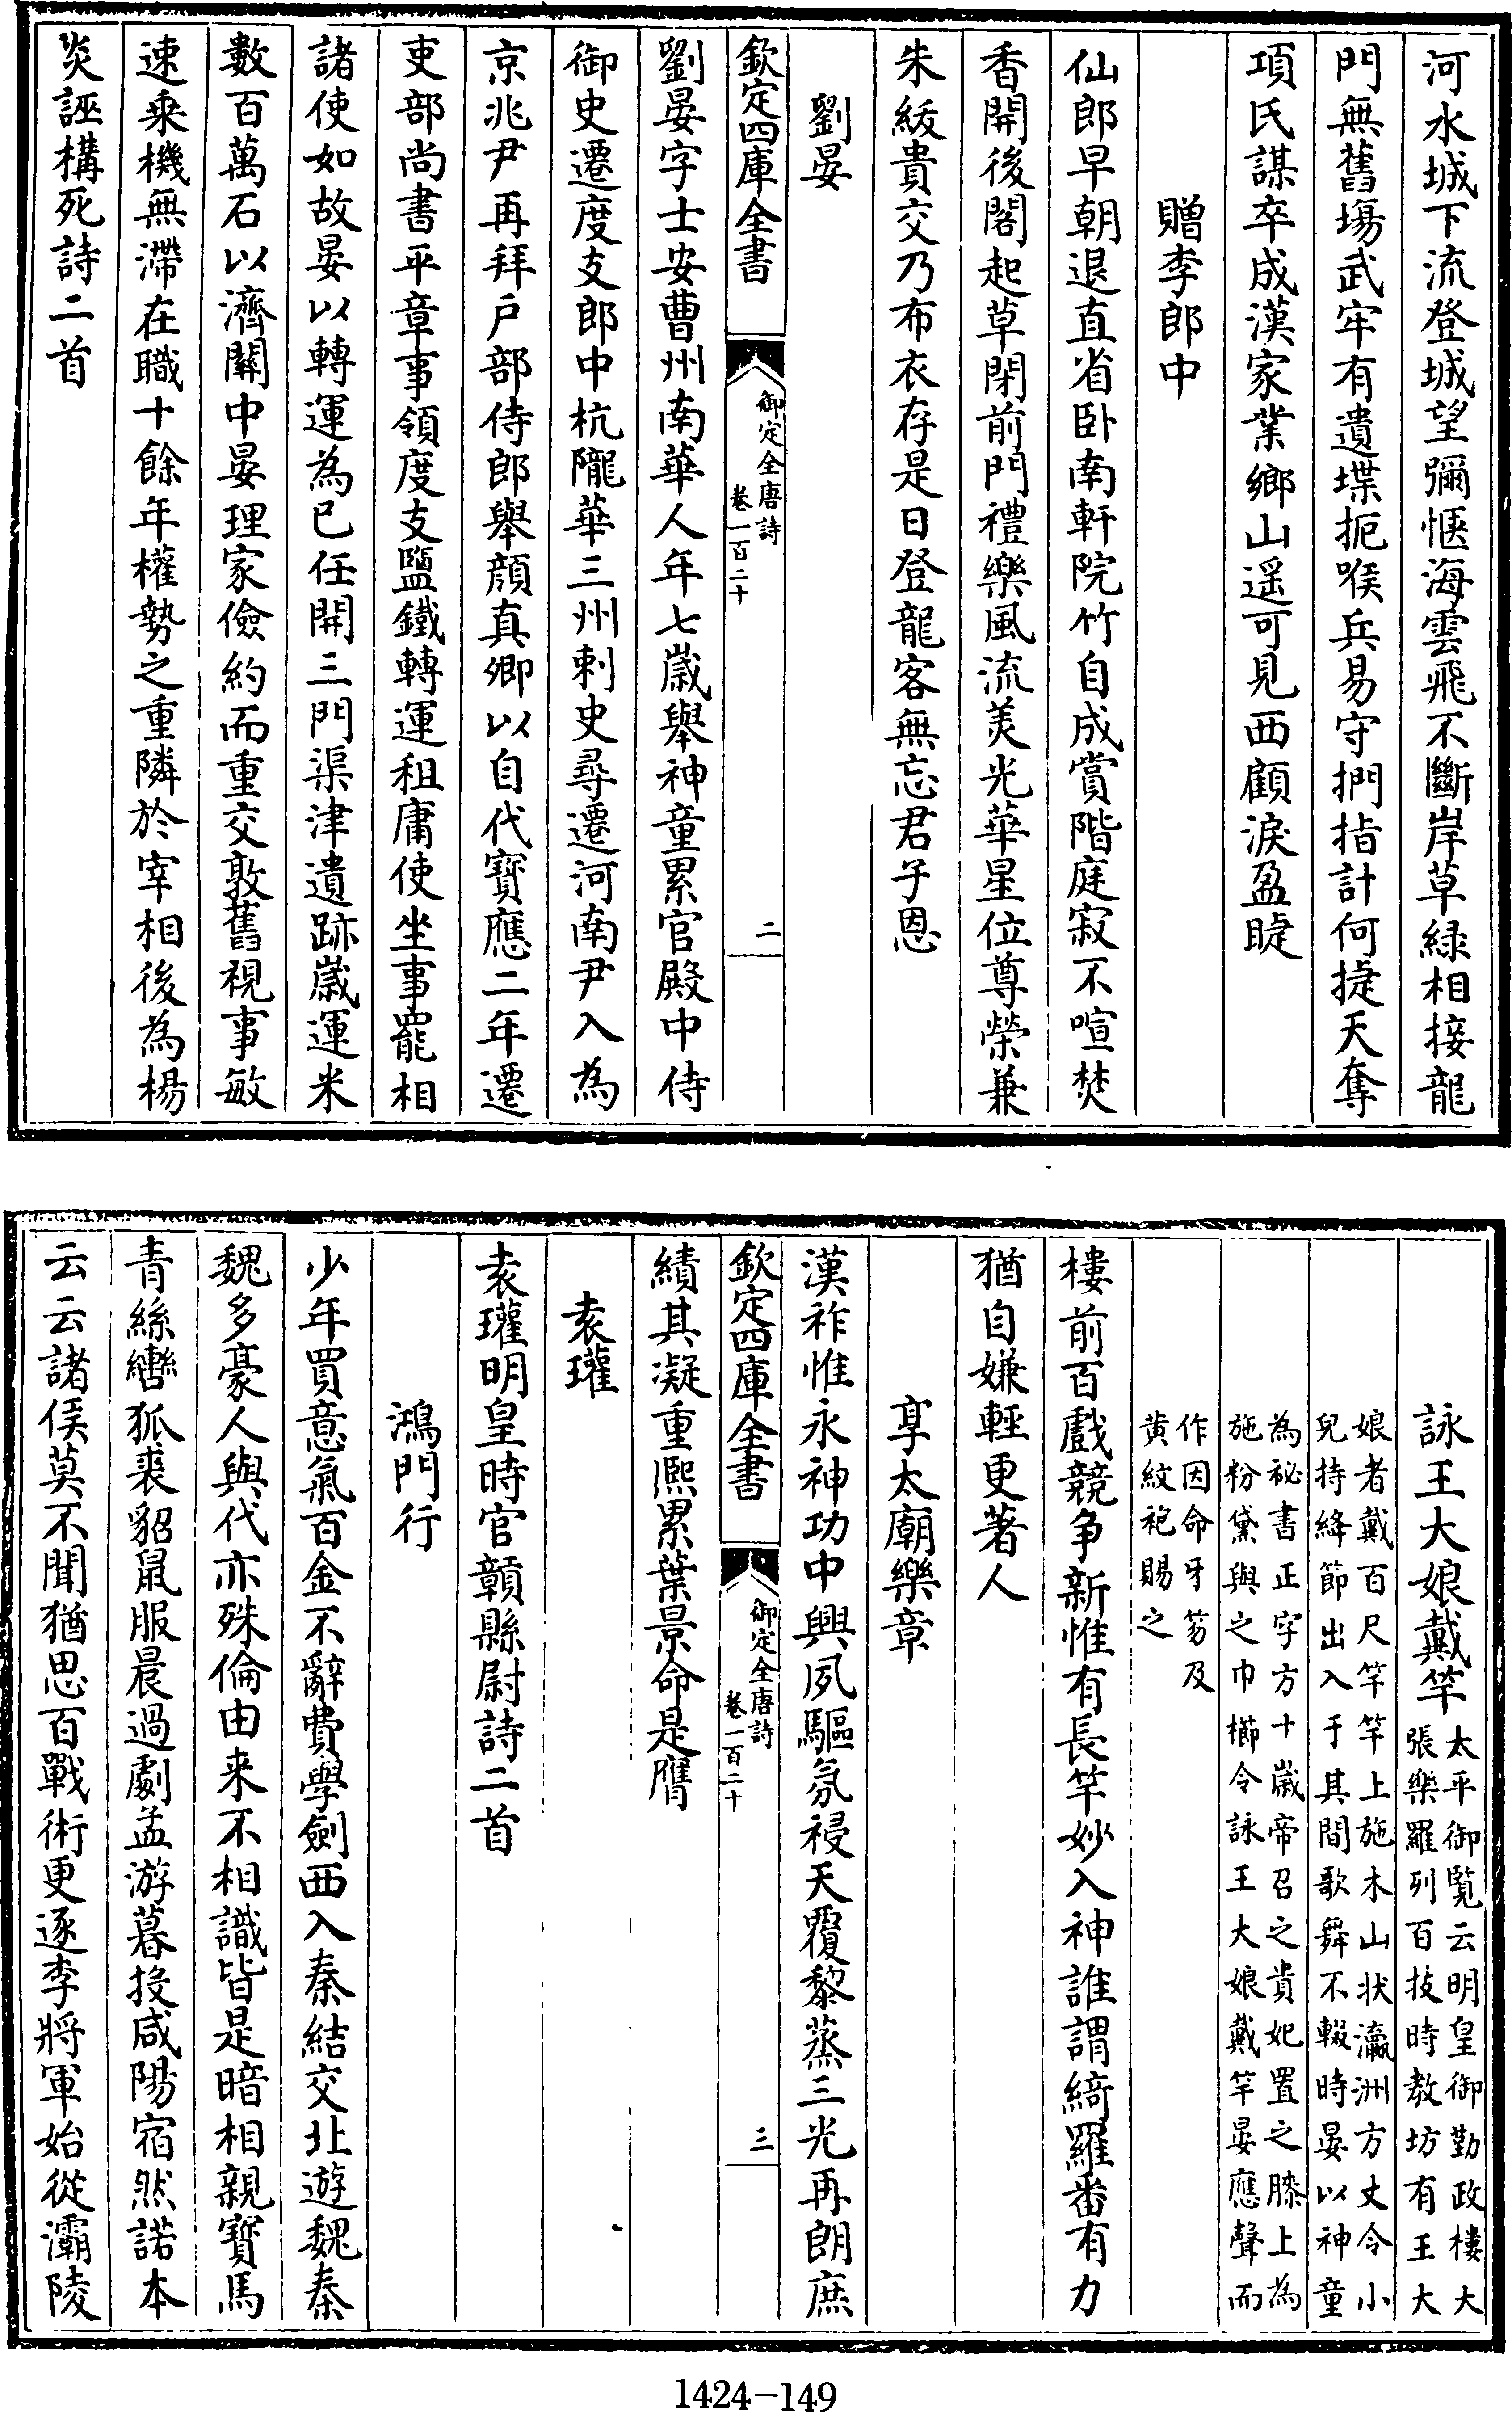 河水城下流登城望彌愜海雲飛不斷岸草緑相接龍
門無舊塲武牢有遺堞扼喉兵易守捫指計何捷天奪
項氏謀卒成漢家業鄉山遥可見西顧淚盈睫
贈李郎中
仙郎早朝退直省卧南軒院竹自成賞階庭寂不喧焚
香開後閣起草閉前門禮樂風流美光華星位尊榮兼
朱紱貴交乃布衣存是日登龍客無忘君子恩
劉晏
欽定四庫全書
御定全唐詩
卷一百二十
二
劉晏字士安曹州南華人年七歲舉神童累官殿中侍
御史遷度支郎中杭隴華三州刺史尋遷河南尹入為
京兆尹再拜戶部侍郎舉顔真卿以自代寶應二年遷
吏部尚書平章事領度支鹽鐵轉運租庸使坐事罷相
諸使如故晏以轉運為已任開三門渠津遺跡歲運米
數百萬石以濟關中晏理家儉約而重交敦舊視事敏
速乘機無滯在職十餘年權勢之重隣於宰相後為楊
炎誣構死詩二首
詠王大娘戴竿
太平御覧云明皇御勤政樓大
張樂羅列百技時教坊有王大
娘者戴百尺竿竿上施木山状瀛洲方丈令小
兒持絳節出入于其間歌舞不輟時晏以神童
為祕書正字方十歲帝召之貴妃置之膝上為
施粉黛與之巾櫛令詠王大娘戴竿晏應聲而
作因命牙笏及
黄紋袍賜之
樓前百戲競争新惟有長竿妙入神誰謂綺羅番有力
猶自嫌輕更著人
享太廟樂章
漢祚惟永神功中興夙驅氛祲天覆黎蒸三光再朗庶
欽定四庫全書
御定全唐詩
卷一百二十
三
績其凝重熙累葉景命是膺
袁瓘
袁瓘明皇時官贛縣尉詩二首
鴻門行
少年買意氣百金不辭費學劍西入秦結交北遊魏秦
魏多豪人與代亦殊倫由来不相識皆是暗相親寶馬
青絲轡狐裘貂鼠服晨過劇孟游暮投咸陽宿然諾本
云云諸侯莫不聞猶思百戰術更逐李將軍始從灞陵
1424-149